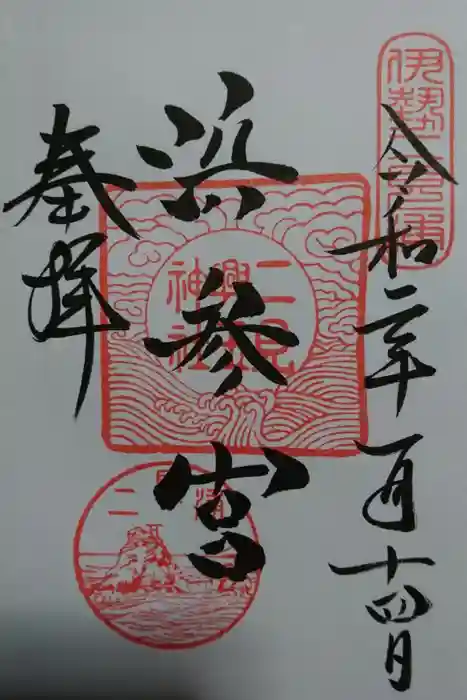 伊勢
令和二年一月十四日
浜参宮
奉拝
二見興玉神社
二見浦